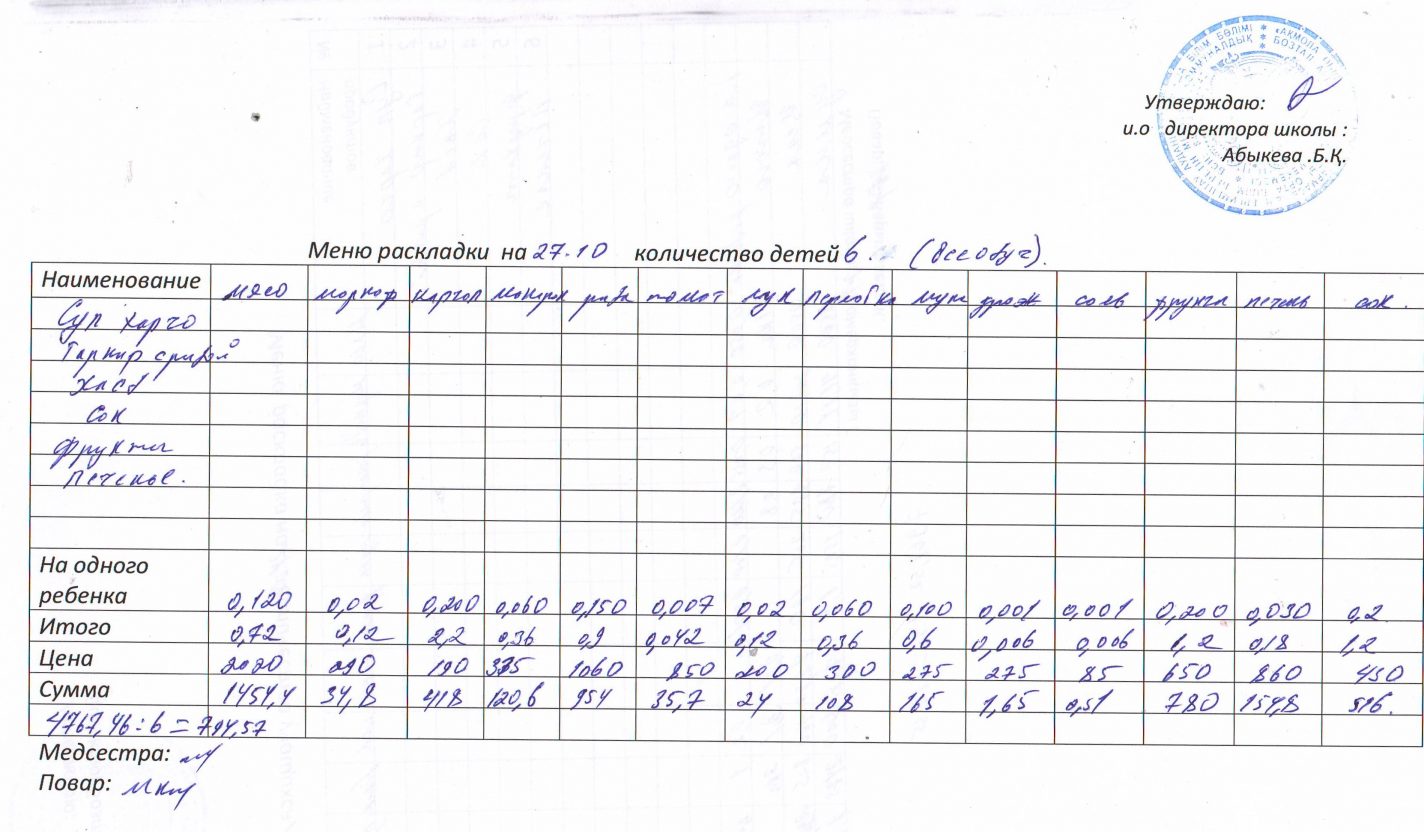 Утверждаю:
и.о директора школы :
Абыкева .Б.Қ.
Меню раскладки на 27.10 количество детей 6. (Всеобуч).
Наименование мясо морков картоп макарон рыба томот лук перловка мука дрож соль фрукты печень сок.
Суп харчо
Гарнир с рыбой
Хлеб
Сок
Фрукты
Печенье.
На одного
ребенка 0,120 0,02 0,200 0,060 0,150 0,007 0,02 0,060 0,100 0,001 0,001 0,200 0,030 0,2
Итого 0,72 0,12 2,2 0,36 0,9 0,042 0,12 0,36 0,6 0,006 0,006 1,2 0,18 1,2
Цена 2020 290 190 335 1060 850 200 300 275 275 85 650 860 430
Сумма 1454,4 34,8 418 120,6 954 35,7 24 108 165 1,65 0,51 780 154,8 516.
4767,46 : 6 = 794,57
Медсестра:
Повар: